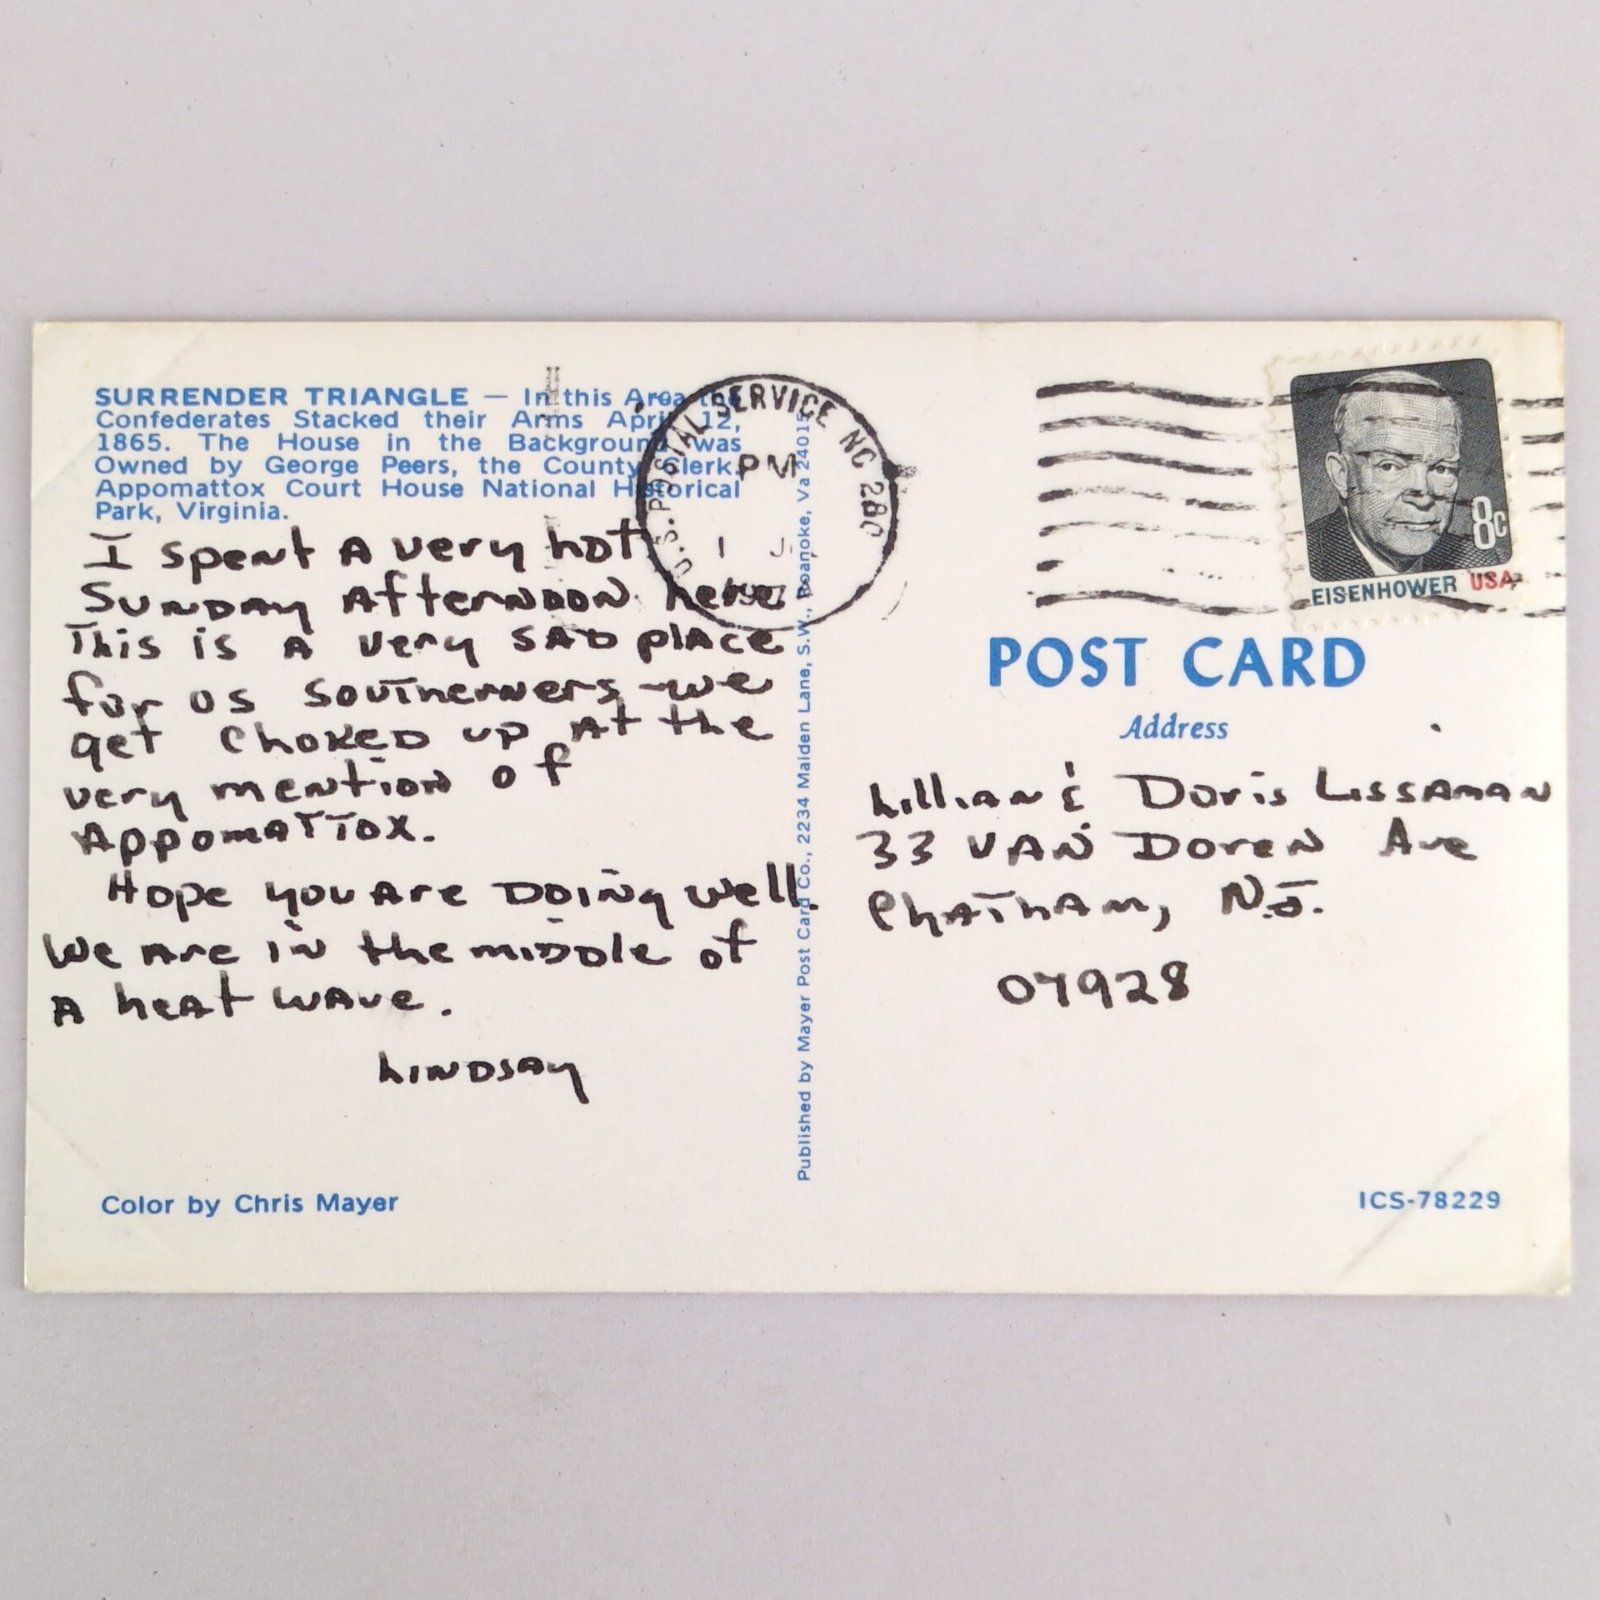 SURRENDER TRIANGLE — In this Area the
Confederates Stacked their Arms April 12,
1865. The House in the Background was
Owned by George Peers, the County Clerk.
Appomattox Court House National Historical
Park, Virginia.
I spent A very hot
SUNDAY AfterNOON here.
This is A very SAD plACe
for us Southerners - we
get ChoKED up At the
very mention of
AppomATTOX.
Hope you Are DOING well.
We Are in the middle of
A heat wave.
LINDSAY
Color by Chris Mayer
Published by Mayer Post Card Co., 2234 Maiden Lane, S.W., Roanoke, Va 24015
U.S. POSTAL SERVICE NC 280
PM
EISENHOWER USA
8c
POST CARD
Address
LilliAN & Doris LissAmAN
33 VAN DoreN Ave
ChAThAm, N.J.
07928
ICS-78229